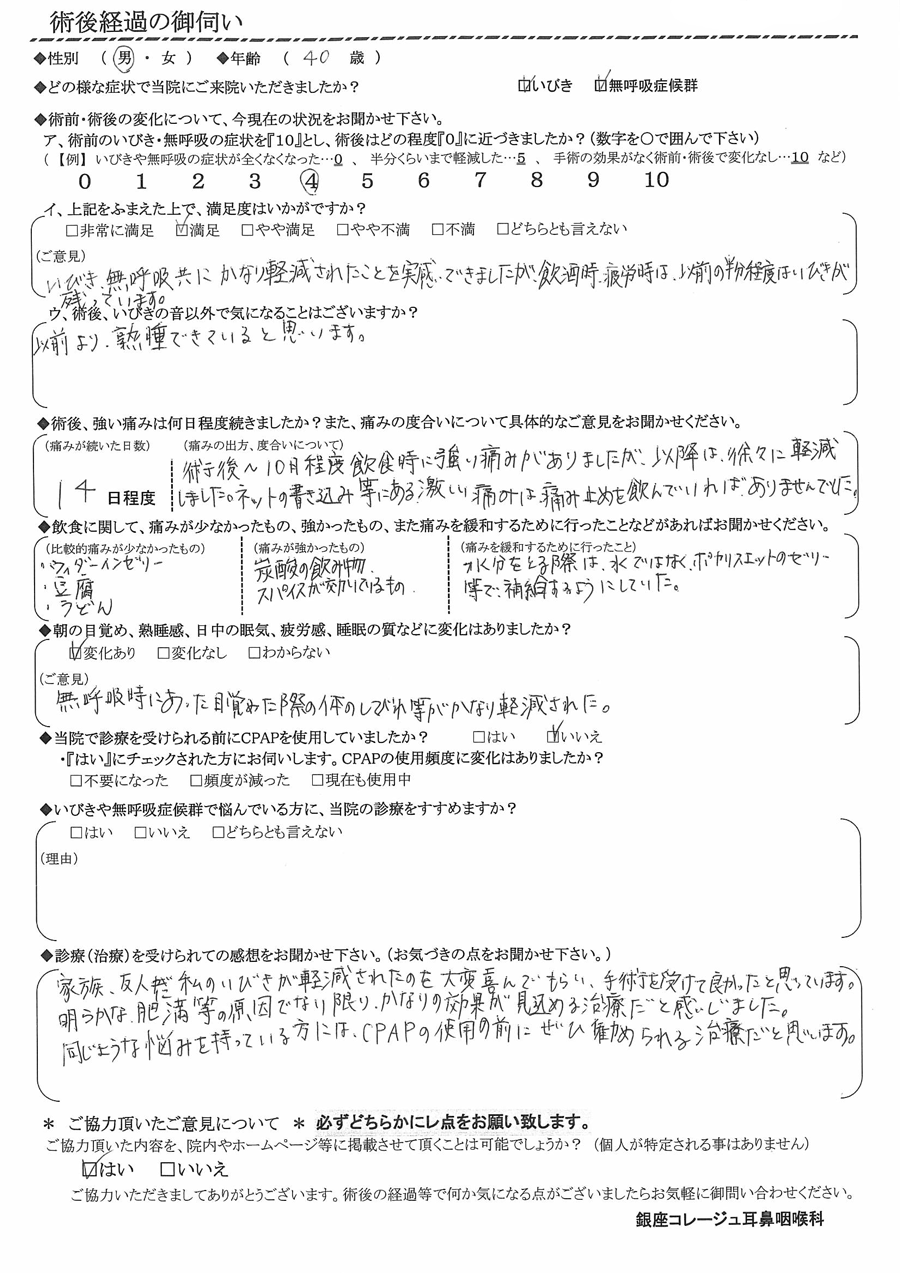 術後経過の御伺い
◆性別 ( 男 ・ 女 ) ◆年齢 ( 40 歳 )
◆どの様な症状で当院にご来院いただきましたか? ☑いびき ☑無呼吸症候群
◆術前・術後の変化について、今現在の状況をお聞かせ下さい。
ア、術前のいびき・無呼吸の症状を『10』とし、術後はどの程度『0』に近づきましたか?(数字を〇で囲んで下さい)
(【例】いびきや無呼吸の症状が全くなくなった…0 、 半分くらいまで軽減した…5 、 手術の効果がなく術前・術後で変化なし…10 など)
0 1 2 3 4 5 6 7 8 9 10
イ、上記をふまえた上で、満足度はいかがですか?
□非常に満足 ☑満足 □やや満足 □やや不満 □不満 □どちらとも言えない
(ご意見)
いびき、無呼吸共に かなり軽減されたことを実感できましたが、飲酒時、疲労時は、以前の半分程度はいびきが
残っています。
ウ、術後、いびきの音以外で気になることはございますか?
以前より、熟睡できていると思います。
◆術後、強い痛みは何日程度続きましたか?また、痛みの度合いについて具体的なご意見をお聞かせください。
(痛みが続いた日数) (痛みの出方、度合いについて)
14 日程度
術後〜10日程度飲食時に強い痛みがありましたが、以降は、徐々に軽減
しました。ネットの書き込み等にある激しい痛みは痛み止めを飲んでいればありませんでした。
◆飲食に関して、痛みが少なかったもの、強かったもの、また痛みを緩和するために行ったことなどがあればお聞かせください。
(比較的痛みが少なかったもの) (痛みが強かったもの) (痛みを緩和するために行ったこと)
・ウィダーインゼリー
・豆腐
・うどん
炭酸の飲み物
スパイスが効いているもの
水分をとる際は、水ではなく、ポカリスエットのゼリー
等で、補給するようにしていた。
◆朝の目覚め、熟睡感、日中の眠気、疲労感、睡眠の質などに変化はありましたか?
☑変化あり □変化なし □わからない
(ご意見)
無呼吸時にあった目覚めた際の体のしびれ等がかなり軽減された。
◆当院で診療を受けられる前にCPAPを使用していましたか? □はい ☑いいえ
・『はい』にチェックされた方にお伺いします。CPAPの使用頻度に変化はありましたか?
□不要になった □頻度が減った □現在も使用中
◆いびきや無呼吸症候群で悩んでいる方に、当院の診療をすすめますか?
□はい □いいえ □どちらとも言えない
(理由)
◆診療(治療)を受けられての感想をお聞かせ下さい。(お気づきの点をお聞かせ下さい。)
家族、友人に 私のいびきが軽減されたのを大変喜んでもらい、手術を受けて良かったと思っています。
明らかな、肥満等の原因でない限り、かなりの効果が見込める治療だと感じました。
同じような悩みを持っている方には、CPAPの使用の前にぜひ勧められる治療だと思います。
* ご協力頂いたご意見について * 必ずどちらかにレ点をお願い致します。
ご協力頂いた内容を、院内やホームページ等に掲載させて頂くことは可能でしょうか? (個人が特定される事はありません)
☑はい □いいえ
ご協力いただきましてありがとうございます。術後の経過等で何か気になる点がございましたらお気軽に御問い合わせください。
銀座コレージュ耳鼻咽喉科